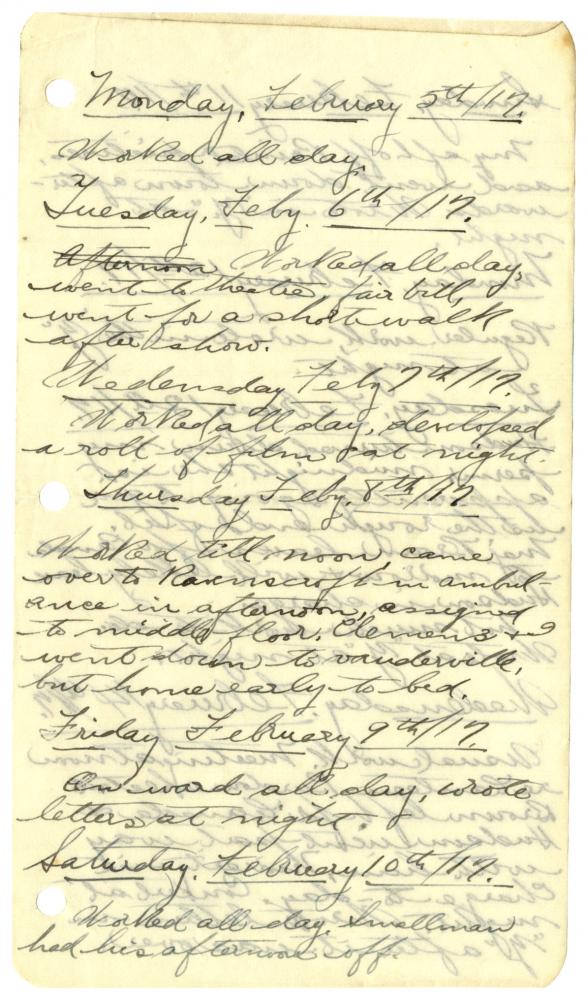 Monday, February 5th/17.
Worked all day.
Tuesday, Feby. 6th/17.
Afternoon Worked all day,
went to theatre, fair bill,
went for a short walk
after show.
Wedensday Feby 7th/17.
Worked all day, developed
a roll of film at night.
Thursday Feby. 8th/17.
Worked till noon, came
over to Ravenscroft in ambul-
ance in afternoon, assigned
to middle floor. Clemens & I
went down to vauderville,
but home early to bed.
Friday February 9th/17.
On ward all day, wrote
letters at night.
Saturday. February 10th/17.
Worked all day. Smellman
had his afternoon off.